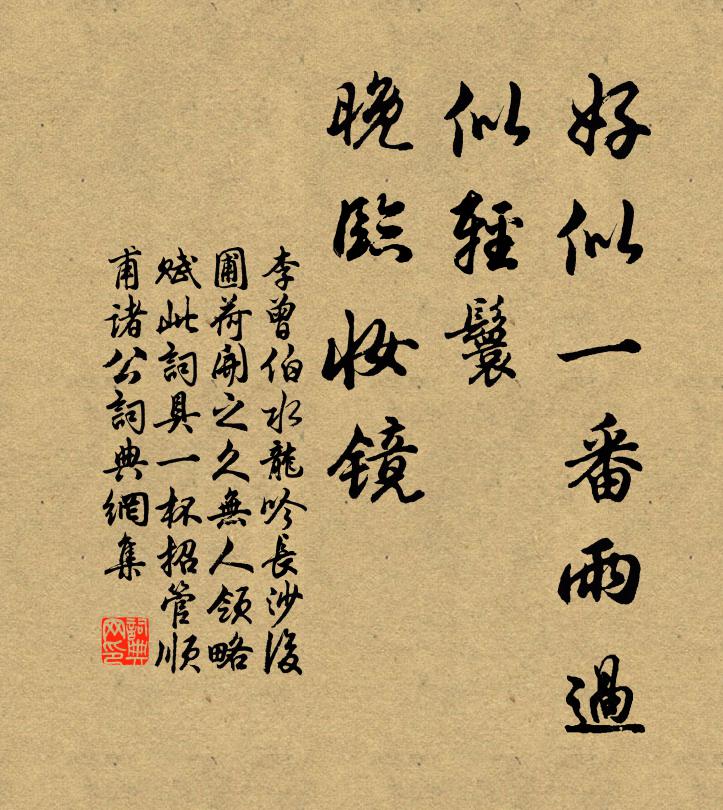 好似一番雨過
似輕鬟
晚臨妝鏡
李曾伯水龍吟長沙後
圃荷開之久無人領略
賦此詞具一杯招管順
甫諸公詞典網集
詞典網印